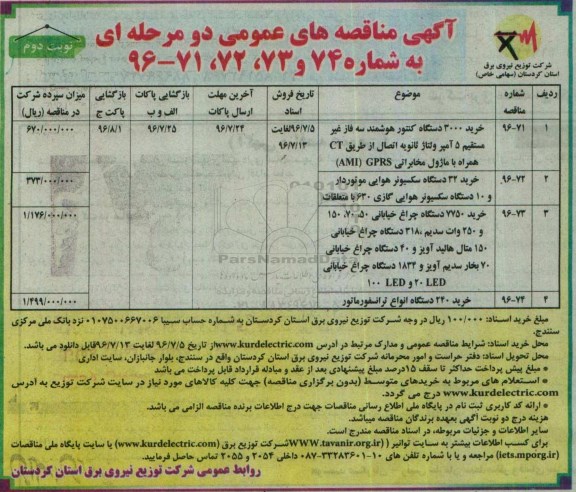 آگهی مناقصه های عمومی دو مرحله ای
به شماره ۷۴ و ۷۳، ۷۲، ۷۱-۹۶
نوبت دوم
شرکت توزیع نیروی برق
استان کردستان (سهامی خاص)
ردیف
شماره مناقصه
موضوع
تاریخ فروش اسناد
آخرین مهلت ارسال پاکات
بازگشایی پاکات الف و ب
بازگشایی پاکت ج
میزان سپرده شرکت در مناقصه (ریال)
۱
۹۶-۷۱
خرید ۳۰۰۰ دستگاه کنتور هوشمند سه فاز غیر
مستقیم ۵ آمپر ولتاژ ثانویه اتصال از طریق CT
همراه با ماژول مخابراتی GPRS (AMI)
۹۶/۷/۵لغایت
۹۶/۷/۱۳
۹۶/۷/۲۴
۹۶/۷/۲۵
۹۶/۸/۱
۶۷۰/۰۰۰/۰۰۰
۲
۹۶-۷۲
خرید ۳۲ دستگاه سکسیونر هوایی موتوردار
و ۱۰ دستگاه سکسیونر هوایی گازی ۶۳۰ با متعلقات
۳۷۳/۰۰۰/۰۰۰
۳
۹۶-۷۳
خرید ۷۷۵۰ دستگاه چراغ خیابانی ۵۰، ۷۰، ۱۵۰
و ۲۵۰ وات سدیم ،۳۱۸ دستگاه چراغ خیابانی
۱۵۰ متال هالید آویز و ۴۰ دستگاه چراغ خیابانی
۷۰ بخار سدیم آویز و ۱۸۳۴ دستگاه چراغ خیابانی
LED ۲۰ و LED ۱۰۰
۱/۱۷۶/۰۰۰/۰۰۰
۴
۹۶-۷۴
خرید ۲۴۰ دستگاه انواع ترانسفورماتور
۱/۴۹۹/۰۰۰/۰۰۰
مبلغ خرید اسناد: ۱۰۰/۰۰۰ ریال در وجه شرکت توزیع نیروی برق استان کردستان به شماره حساب سیبا ۰۱۰۷۵۰۰۶۶۷۰۰۶ نزد بانک ملی مرکزی
سنندج.
محل خرید اسناد: شرایط مناقصه عمومی و مدارک مرتبط در آدرس www.kurdelectric.comاز تاریخ ۹۶/۷/۵ لغایت ۹۶/۷/۱۳قابل دانلود می باشد.
محل تحویل اسناد: دفتر حراست و امور محرمانه شرکت توزیع نیروی برق استان کردستان واقع در سنندج، بلوار جانبازان، سایت اداری
* مبلغ پیش پرداخت حداکثر تا سقف ۱۵درصد مبلغ پیشنهادی بعد از عقد و مبادله قرارداد قابل پرداخت می باشد
* اسـتعلام های مربوط به خریدهای متوسـط (بدون برگزاری مناقصه) جهت کلیه کالاهای مورد نیاز در سایت شرکت توزیع به آدرس
www.kurdelectric.com درج می گردد.
* ارائه کد کاربری ثبت نام در پایگاه ملی اطلاع رسانی مناقصات جهت درج اطلاعات برنده مناقصه الزامی می باشد.
هزینه درج دو نوبت آگهی بعهده برندگان مناقصه میباشد.
سایر اطلاعات و جزئیات مربوطه، در اسناد مناقصه مندرج است.
برای کسب اطلاعات بیشتر به سایت توانیر ( WWW.tavanir.org.ir)شرکت توزیع برق (www.kurdelectric.com) یا سایت پایگاه ملی مناقصات
(iets.mporg.ir) مراجعه و یا با شماره تلفن های ۱۰-۳۳۲۸۳۶۰۱-۰۸۷ داخلی ۲۰۵۴ و ۲۰۵۵ تماس حاصل فرمایید.
روابط عمومی شرکت توزیع نیروی برق استان کردستان
ParsNamadData